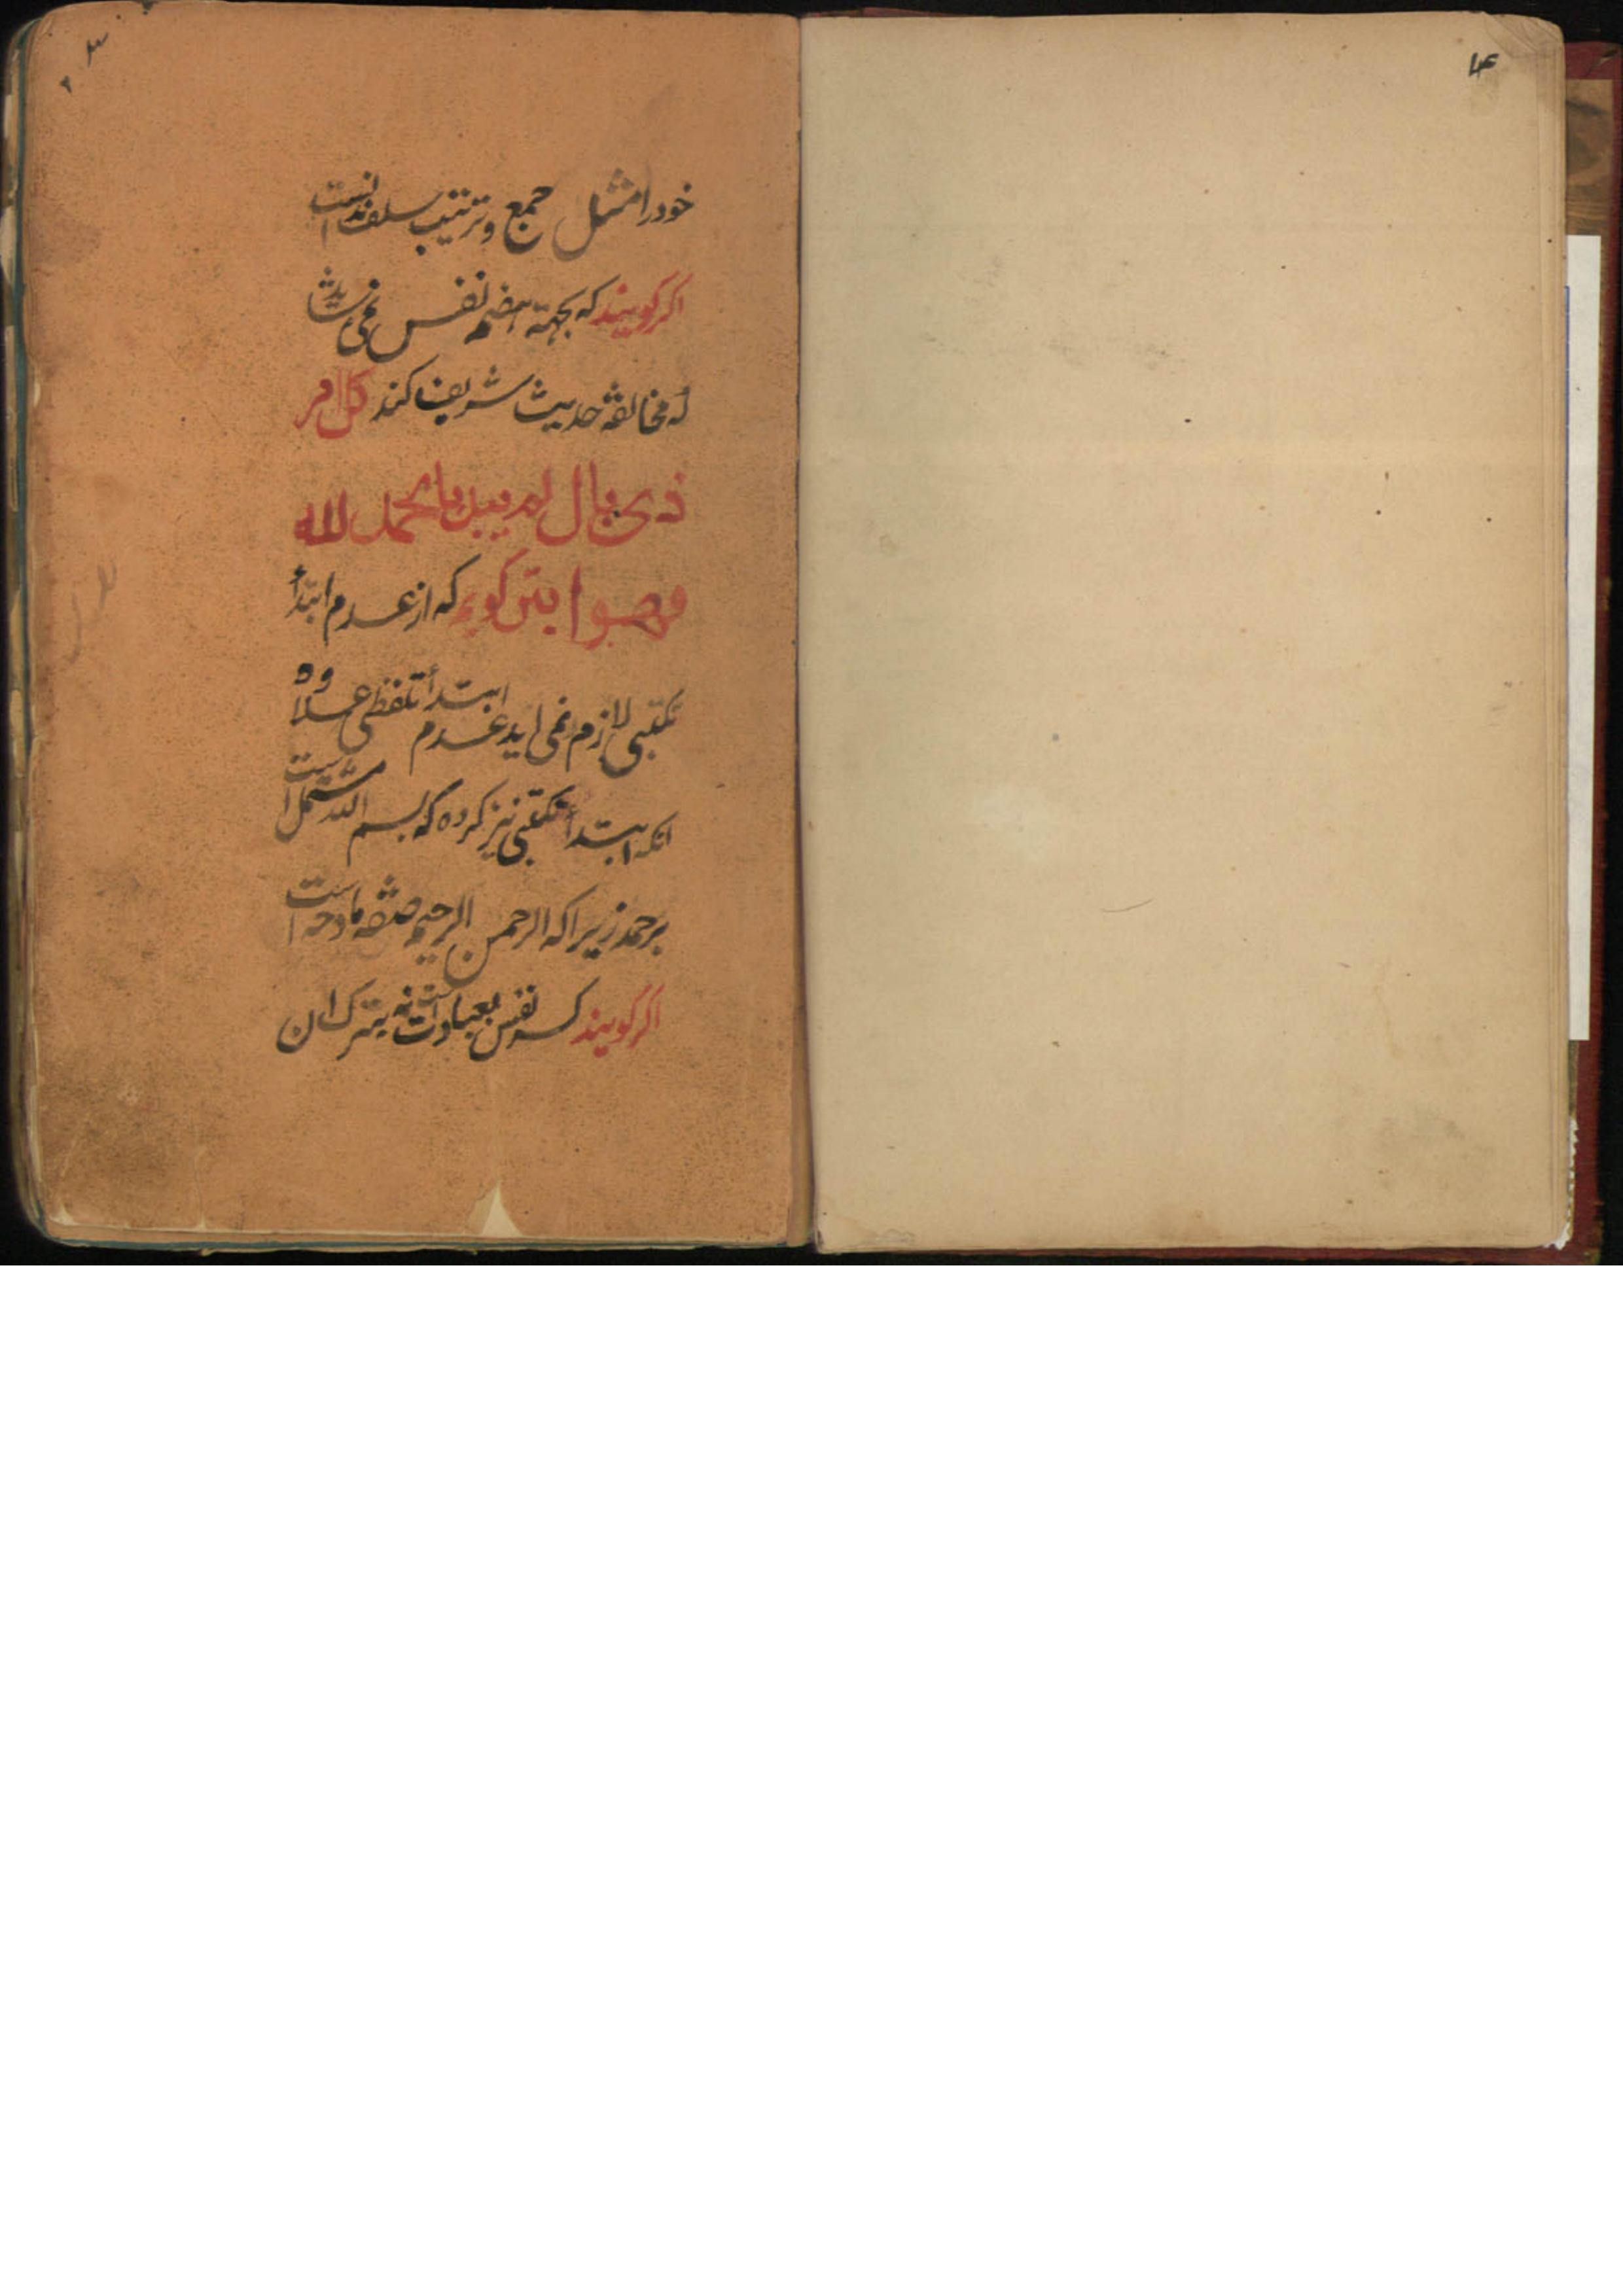 ۳
۴
خود را مثل جمع و ترتیب سلف ندانست
اکر کویند که بجهته هضم نفس نمی شاید
که مخالفة حدیث شریف کند کل امر
ذی بال لم یبدا بالحمد لله
فهو ابتر کویم که از عدم ابتدأ
تکتبی لازم نمی اید عدم ابتدأ تلفظی علاوه
انکه ابتدأ تکتبی نیز کرده که بسم الله مشتمل است
برحمد زیرا که الرحمن الرحیم صفة مادحه است
اکر کویند کسر نفس بعبادت است نه بترک ان